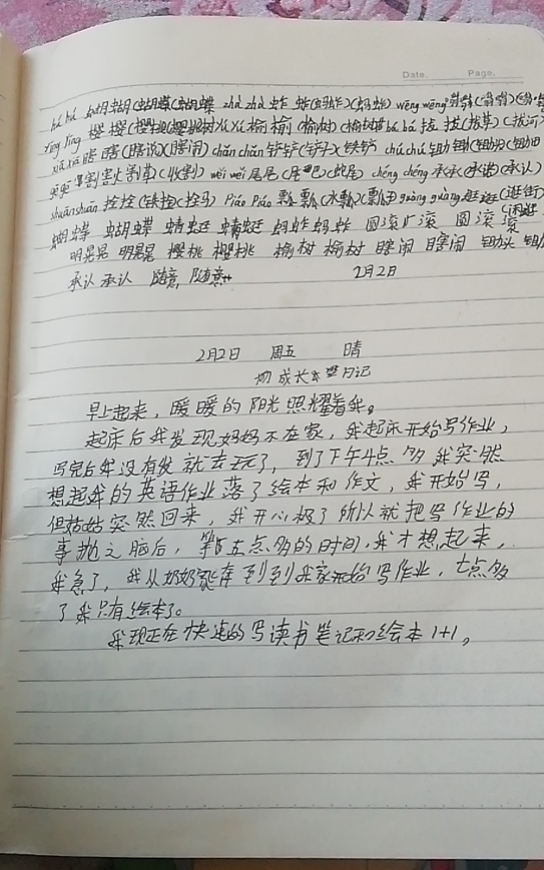 Date. Page.
hú hú 蝴蝴(蝴蝶)(蝴蝶 zhà zhà 蚱 蚱(蚂蚱)(蚂蚱) wēng wēng 翁翁(翁翁)
yīng yīng 樱 樱(樱桃)(樱桃树 yú yú 榆榆(榆树)(榆树 bá bá 拔 拔(拔草)(拔河
xiā xiā 瞎 瞎(瞎说)(瞎闹) chǎn chǎn 铲铲(铲子)(铁铲 chú chú 锄 锄(锄头)(锄田
割割(割草)(收割) wěi wěi 尾尾(尾巴)(蛇尾) chéng chéng 承承(承诺)(承认)
shuānshuān 拴拴(拴马) Piáo Piáo 瓢瓢(水瓢)(瓢 guàng guàng 逛逛(逛街)
蝴蝶 蝴蝶 蜻蜓 蜻蜓 蚂蚱蚂蚱 圆滚滚 圆滚滚
明晃晃 明晃晃 樱桃 樱桃 榆树 榆树 瞎闹 瞎闹 锄头
承认 承认 随意 随意
2月2日
2月2日 周五 晴
成长 日记
早上起来，暖暖的阳光照耀着我。
起床后我发现妈妈不在家，我起床开始写作业，
写完后我没有 就去玩了，到了下午4点多我突然
想起我的英语作业落了绘本和作文，我开始写，
但姑姑突然回来，我开心极了所以就把写作业的
事抛之脑后，等五点多的时间，我才想起来，
我急了，我从奶奶家奔到到我家开始写作业，七点多
了我只有绘本了。
我现在在快速的写读书笔记和绘本1+1。